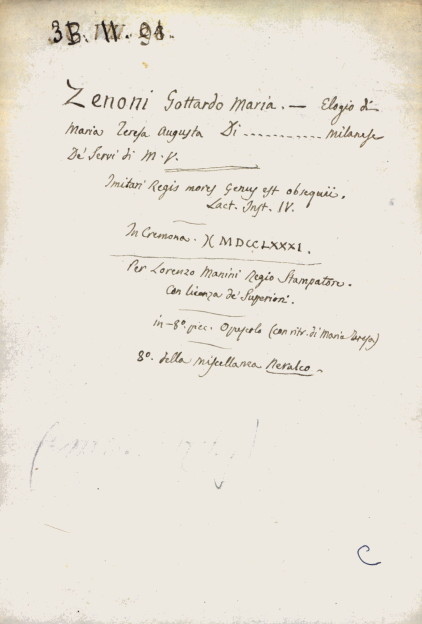 3B. IV. 94.
Zenoni Gottardo Maria. — Elogio di
Maria Teresa Augusta Di ........... milanese
De' Servi di M. V.
Imitari Regis mores Genus est obsequii.
Lact. Inst. IV.
In Cremona. )( MDCCLXXXI.
Per Lorenzo Manini Regio Stampatore.
Con licenza de' Superiori.
in-8°. picc. Opuscolo (con ritr. di Maria Teresa)
8°. della miscellanea Neralco.
C